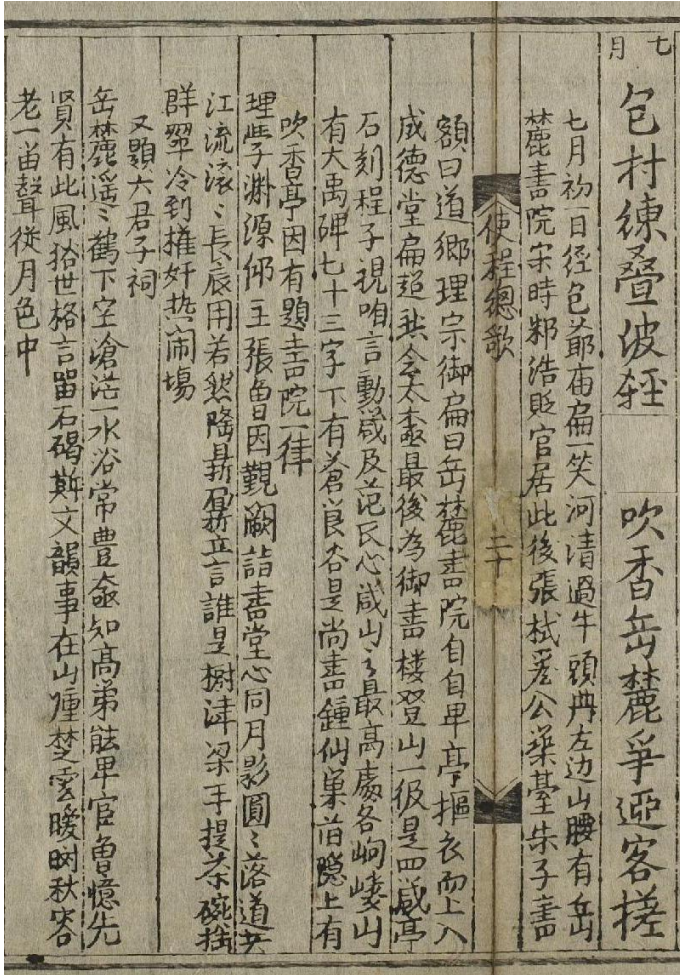 七月
包村練叠波輊 吹香岳麓爭迎客搓
七月初一日径包爺庙扁一笑河清過牛頭冉左边山腰有岳
麓書院宋時鄒浩貶官居此後張栻爲公築臺朱子書
使程總歌 二十
額曰道鄉理宗御扁曰岳麓書院自自卑亭摳衣而上入
成德堂扁超然会太極最後為御書楼登山一級是四箴亭
石刻程子視听言動箴及范氏心箴山之最高處各峋嶁山
有大禹碑七十三字下有蒼筤谷是尚書鍾仙巢笛隱上有
吹香亭因有題書院一律
理学渊源仰王張魯因觀闕詣書堂心同月影圓〻落道共
江流滚〻長辰用若然陸鼎鼐立言誰是樹津梁手提茶碗捨
群翠冷到權奸热闹場
又題六君子祠
岳麓遥〻鶴下空滄茫一水浴常豊奩知高弟能卑官魯憶先
賢有此風俗世格言畱石碣斯文韻事在山僮楚雲暖樹秋容
老一笛聲從月色中